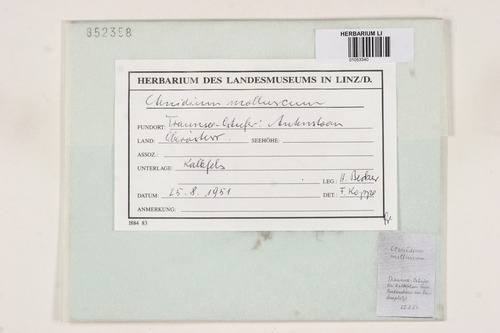 352358
HERBARIUM LI
01053340
HERBARIUM DES LANDESMUSEUMS IN LINZ/D.
Ctenidium molluscum
FUNDORT: Traunsee-Ostufer:
LAND: Oberösterr. SEEHÖHE:
ASSOZ.:
UNTERLAGE: Kalkfels
LEG.: H. Becker
DATUM: 25.8.1951 DET.: F. Koppe
ANMERKUNG:
1884 83
Ctenidium
molluscum
Traunsee-Ostufer